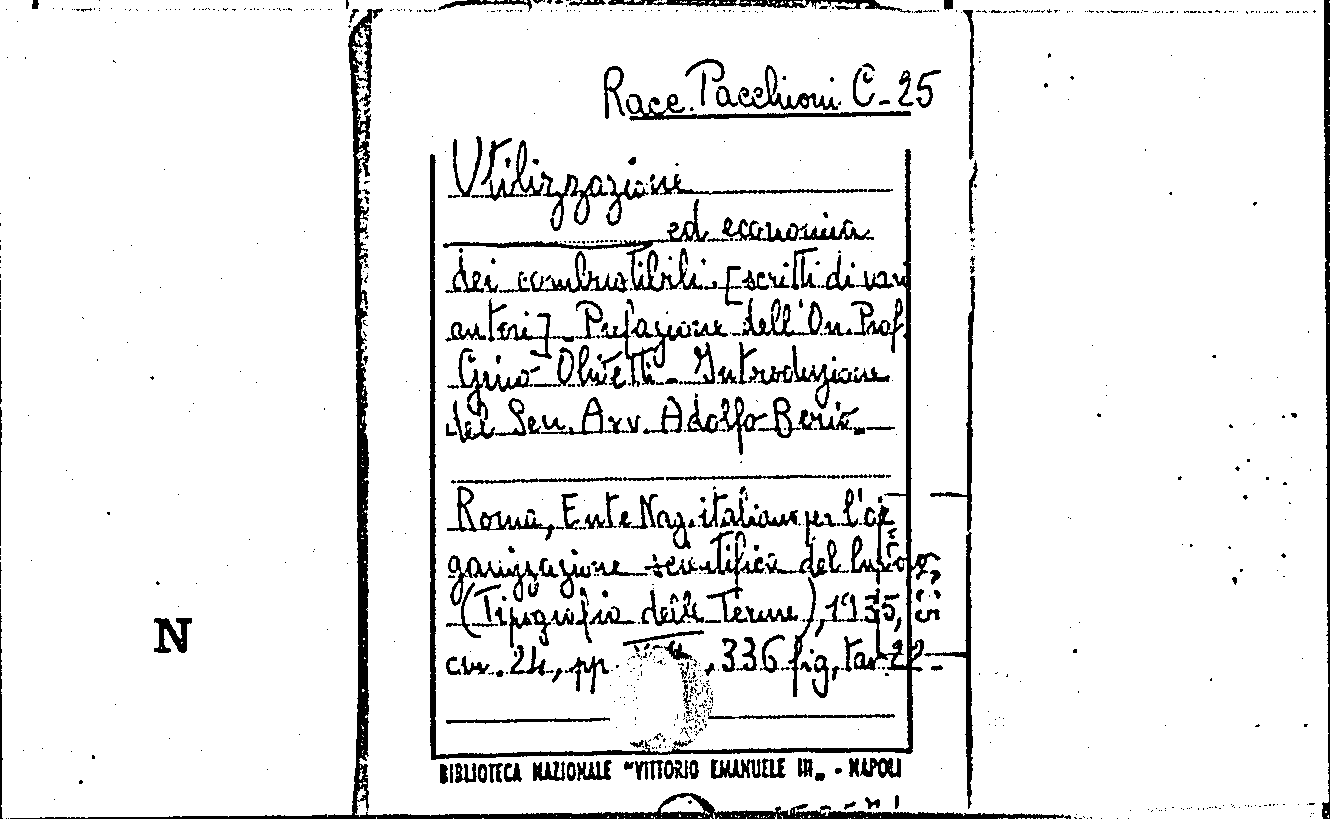 Racc. Pacchioni C-25
Utilizzazione
ed economia
dei combustibili. [scritti di vari
autori] - Prefazione dell'On. Prof.
Gino Olivetti - Introduzione
del Sen. Avv. Adolfo Berio.
Roma, Ente Naz. italiano per l'or
ganizzazione scientifica del lavoro
(Tipografia delle Terme), 1935,
cm. 24, pp. , 336 fig, tav 22 -
N
BIBLIOTECA NAZIONALE "VITTORIO EMANUELE III„ - NAPOLI